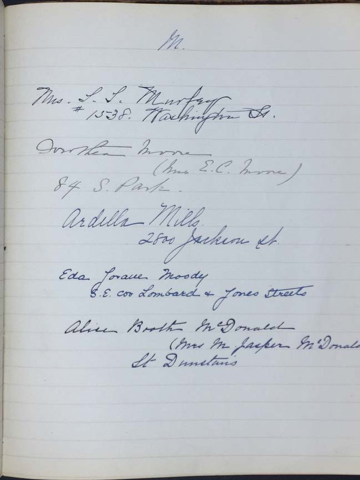 M.
Mrs. L. L. Murfey
# 1538. Washington St.
Dorothea Moore
(Mrs E.C. Moore)
84 S. Park.
Ardella Mills
2800 Jackson St
Eda Moody
S.E. cor Lombard & Jones Streets
Alice Booth McDonald
(Mrs M Jasper McDonald
St Dunstans